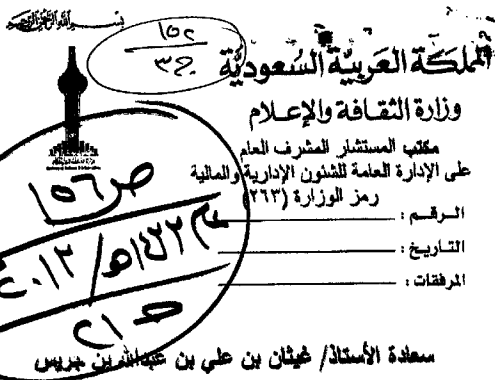 بسم الله الرحمن الرحيم
١٥٢
٣ج
المملكة العربية السعودية
وزارة الثقافة والإعلام
مكتب المستشار المشرف العام
على الإدارة العامة للشئون الإدارية والمالية
رمز الوزارة (٢٦٣)
الرقم :
التاريخ :
المرفقات :
ص ١٥٦
١٤٣٣هـ / ٢٠١٢
ح ٢١
سعادة الأستاذ/ غيثان بن علي بن عبدالله بن جريس